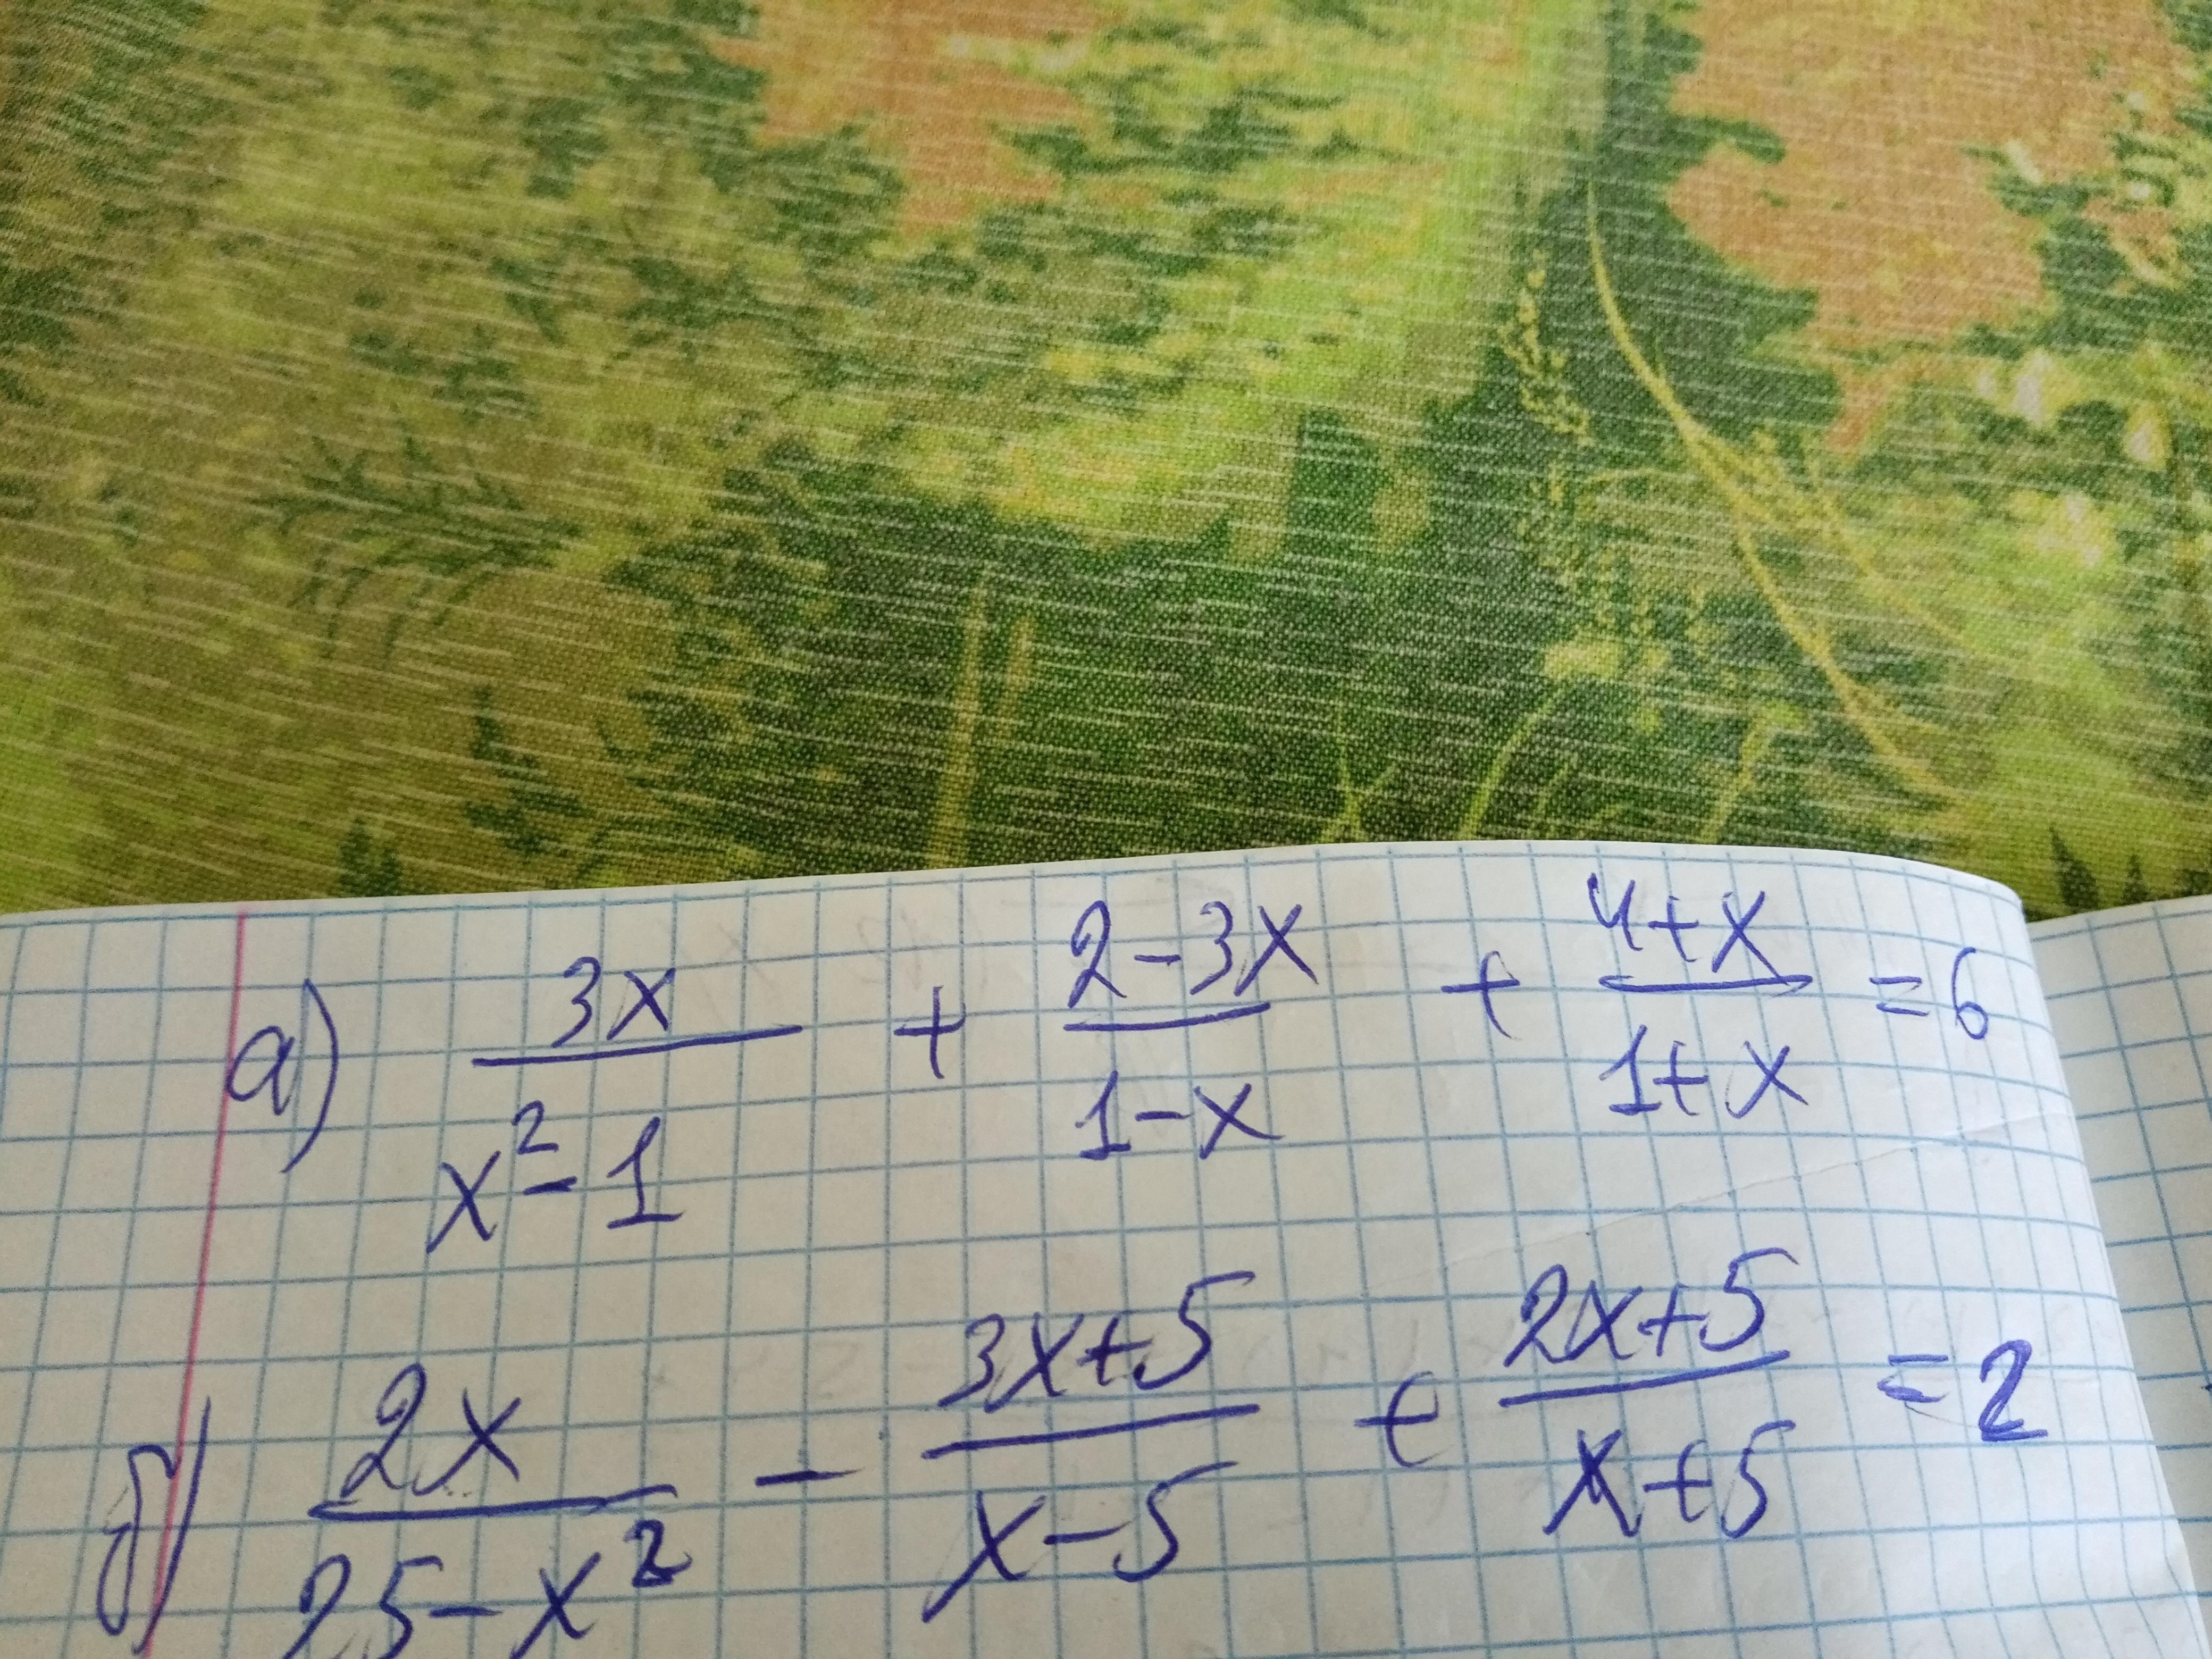 а) 3x/(x²-1) + (2-3x)/(1-x) + (4+x)/(1+x) = 6
б) 2x/(25-x²) - (3x+5)/(x-5) + (2x+5)/(x+5) = 2